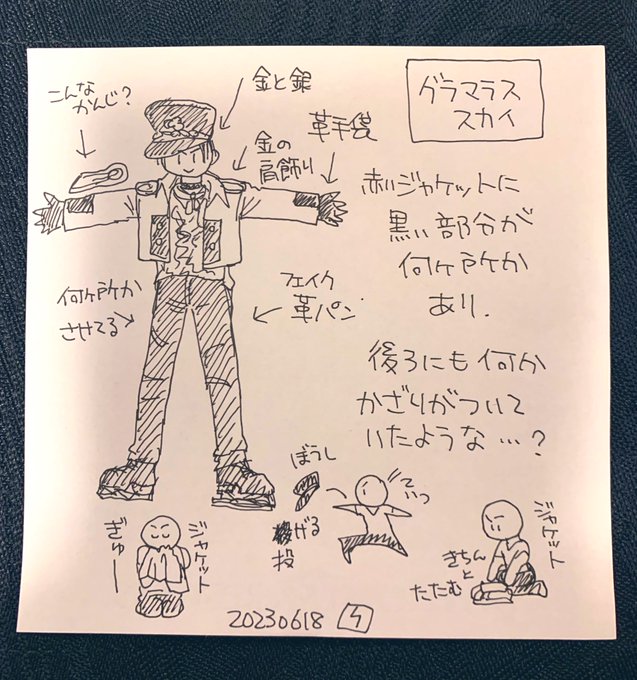 グラマラス
スカイ
こんな
かんじ?
金と銀
革手袋
金の
肩飾り
赤いジャケットに
黒い部分が
何ヶ所か
あり.
何ヶ所か
させてる
フェイク
革パン
後ろにも何か
かざりがついて
いたような…?
ぼうし
投げる
投
ていっ
ジャケット
ぎゅー
ジャケット
きちんと
たたむ
20230618